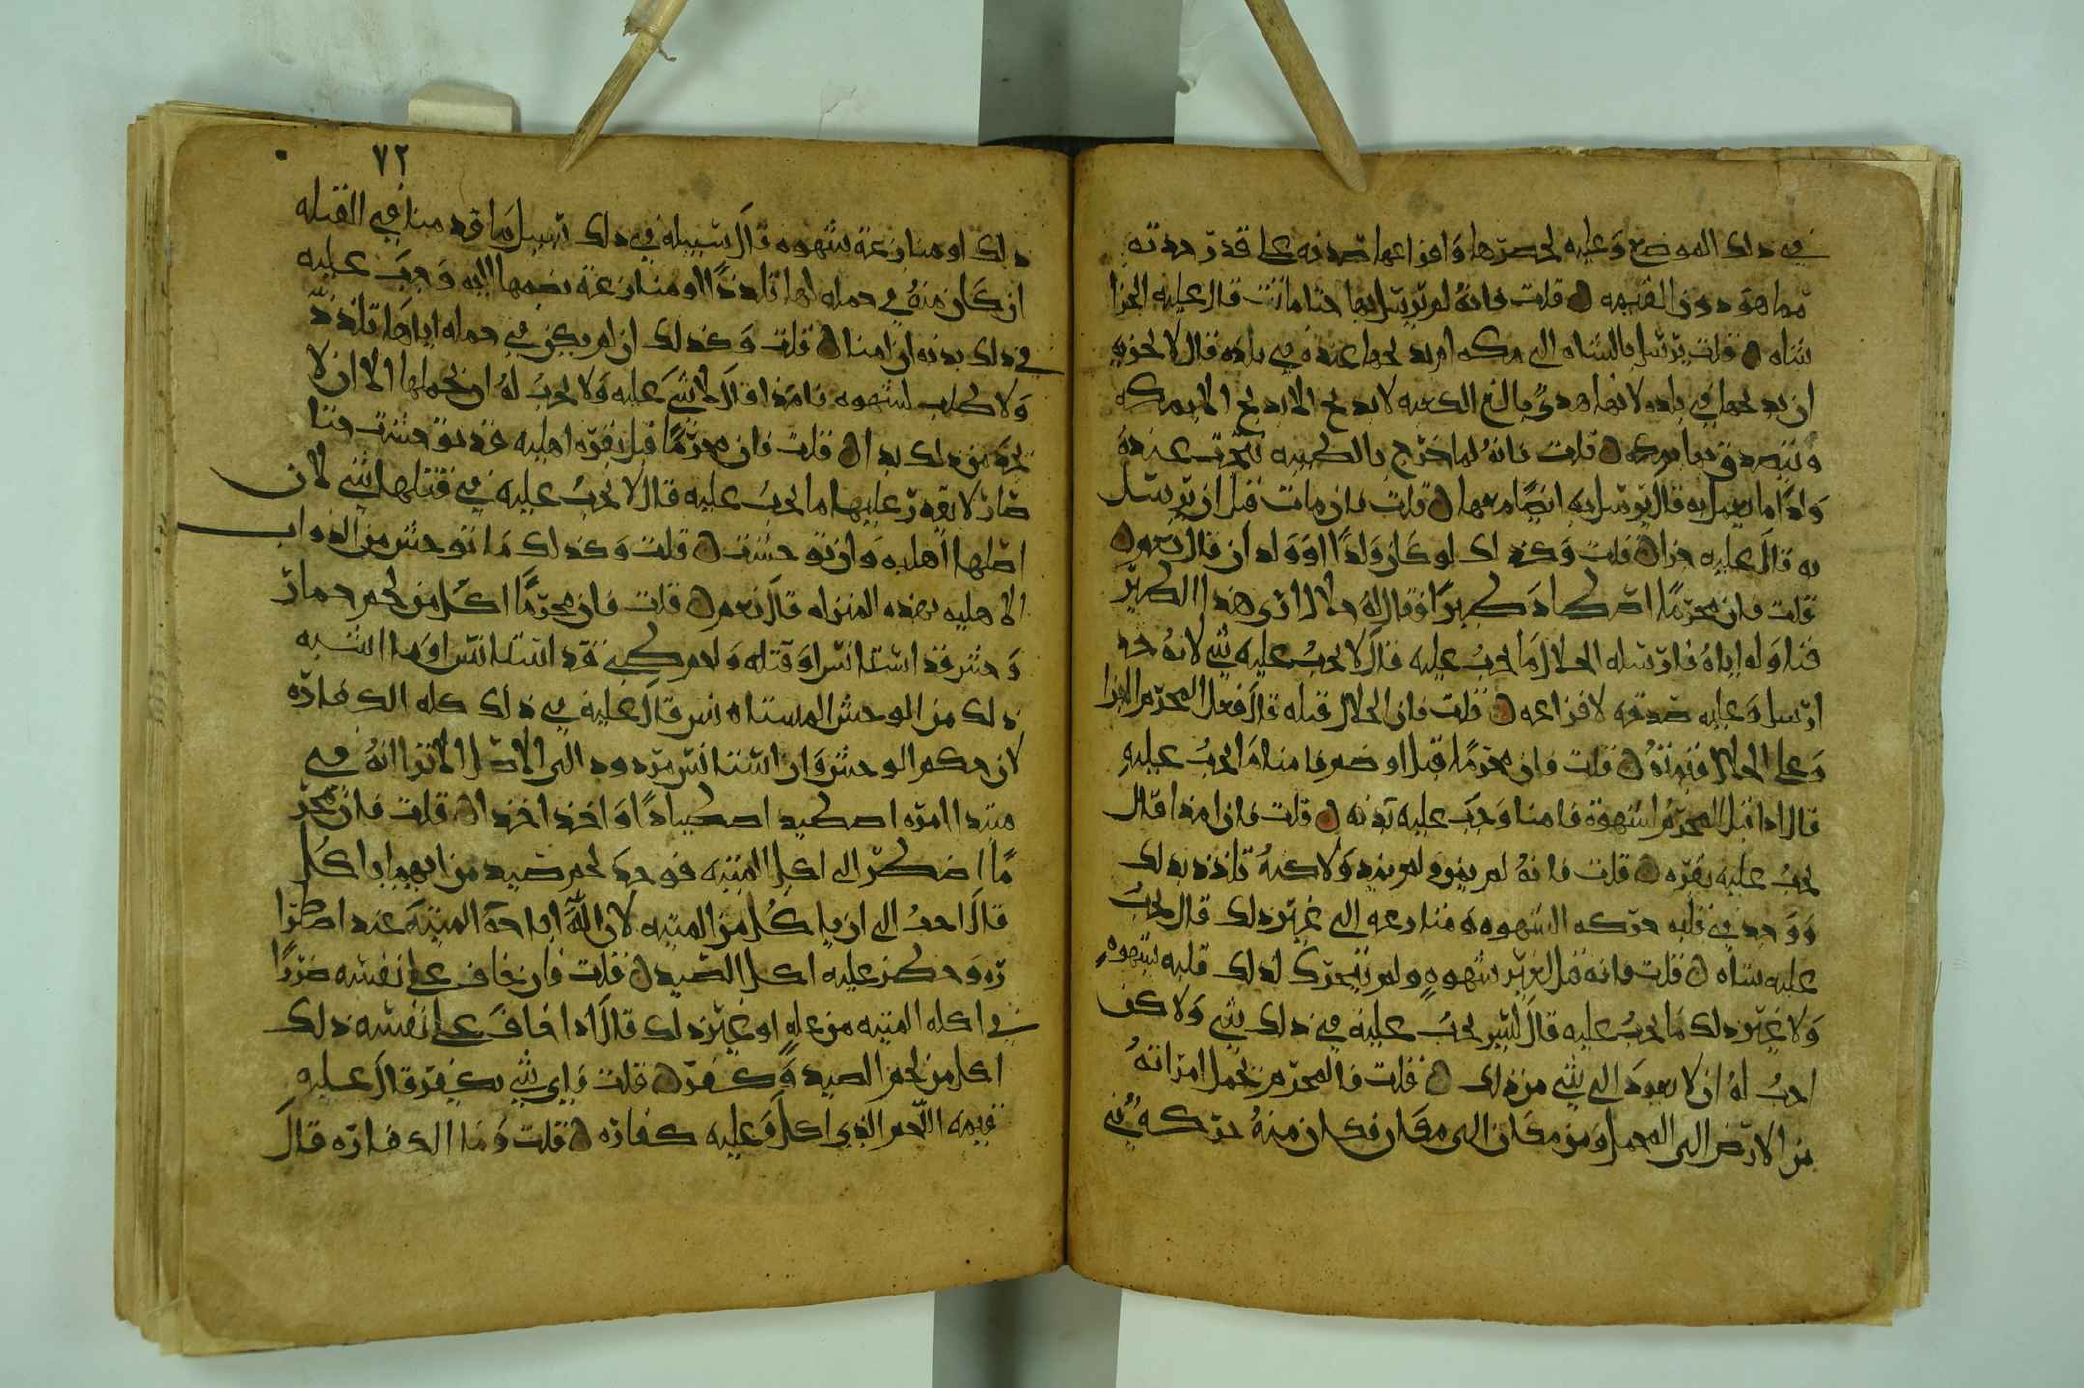 في ذلك الموضع وعليه لحصرها وافزاعها صدقه على قدر حدثه
مما هو دون القيمه قلت فانه لم يرسلها حتا ماتت قال عليه الجزا
شاه قلت يرسل بالشاه الى مكه ام يذبحها عنده في بلده قال لا يجزيه
ان يذبحها في بلده لانها هدي بالغ الكعبه لا يذبح الا يذبح الا بمكه
ويتصدق بها بمكه قلت فانه لما خرج بالظبيه نتجت عنده
ولدا ما يعمل به قال يرسل به ايضا معها قلت فان مات قبل ان يرسل
به قال عليه جزا قلت وكذلك لو كان ولدا او ولدان قال نعم
قلت فان محرما اصطاد طيرا فقال له حلال ارى هذا الطير
فناوله اياه فارسله الحلال ما يجب عليه قال لا يجب عليه شي لانه حد
ارسل وعليه صدقه لافزاعه قلت فان الحلال قتله قال فعلى المحرم الجزا
وعلى الحلال قيمته قلت فان محرما قبل او ضم فامنا ما يجب عليه
قال اذا قبل المحرم لشهوة فامنا وجب عليه بدنه قلت فان امذا قال
يجب عليه بقره قلت فانه لم يمن ولم يمذ ولاكنه تلذذ بذلك
ووجد في قلبه حركه الشهوه ومنازعه الى غير ذلك قال يجب
عليه شاه قلت فانه قبل لغير شهوه ولم يتحرك لذلك قلبه بشهوه
ولا غير ذلك ما يجب عليه قال ليس يجب عليه في ذلك شي ولاكن
احب له ان لا يعود الى شي من ذلك قلت فالمحرم يحمل امراته
من الارض الى المحمل او من مكان الى مكان فكان منه حركه في
٧٢
ذلك او منازعة شهوه قال سبيله في ذلك سبيل ما قدمنا في القبله
ان كان منه في حمله لها تلذذا او منازعة بضمها اليه وجب عليه
في ذلك بدنه ان امنا قلت وكذلك ان لم يكن في حمله اياها تلذذ
ولا طلب لشهوه فامذا قال لا شي عليه ولا يجب له ان يحملها الا ان لا
يجد من ذلك بدا قلت فان محرما قتل بقره اهليه قد توحشت حتا
صار لا يقدر عليها ما يجب عليه قال لا يجب عليه في قتلها شي لان
اصلها اهليه وان توحشت قلت وكذلك ما توحش من الدواب
الاهليه بهذه المنزله قال نعم قلت فان محرما اكل من لحم حمار
وحش قد استانس او قتله ولحم ظبي قد استانس او ما اشبه
ذلك من الوحش المستانس قال عليه في ذلك كله الكفاره
لان حكم الوحش وان استانس مردود الى الاصل الا ترا انه في
مبتدا امره اصطيد اصطيادا واخذ اخذا قلت فان محر
ما اضطر الى اكل الميته فوجد لحم صيد من ايهما ياكل
قال احب الي ان ياكل من الميته لان الله اباحة الميتة عند اضطرا
ره وحظر عليه اكل الصيد قلت فان خاف على نفسه ضررا
في اكله الميته من عله او غير ذلك قال اذا خاف على نفسه ذلك
اكل من لحم الصيد وكفر قلت فاي شي يكفر قال عليه
قيمه اللحم الذي اكل وعليه كفاره قلت وما الكفاره قال